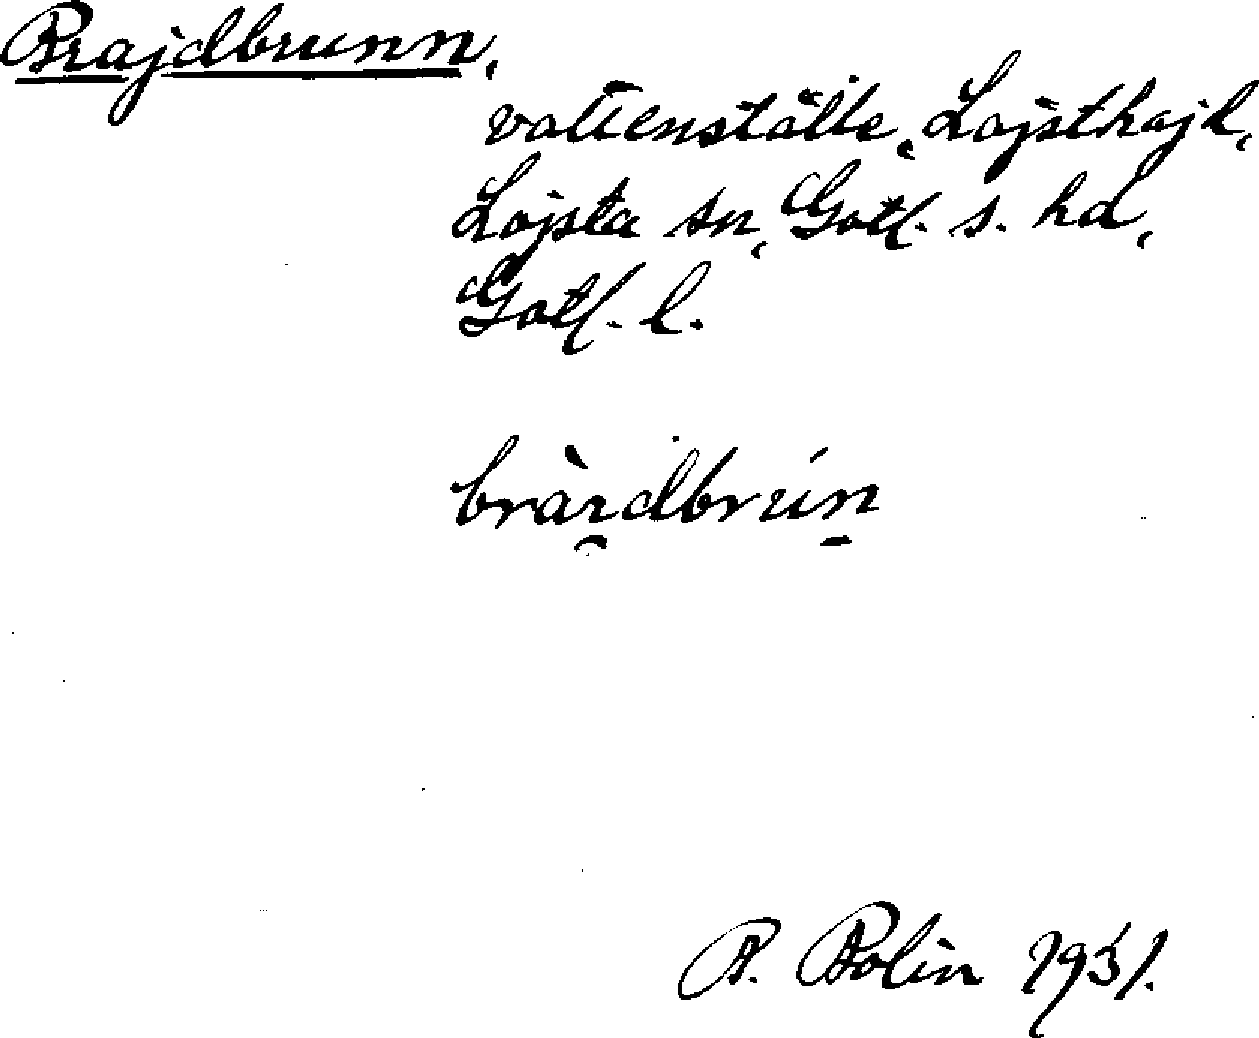 Brajdbrunn,
vattenställe, Lojsthajd,
Lojsta sn, Gotl. s. hd,
Gotl. l.
bràidbrún
B. Bolin 1931.